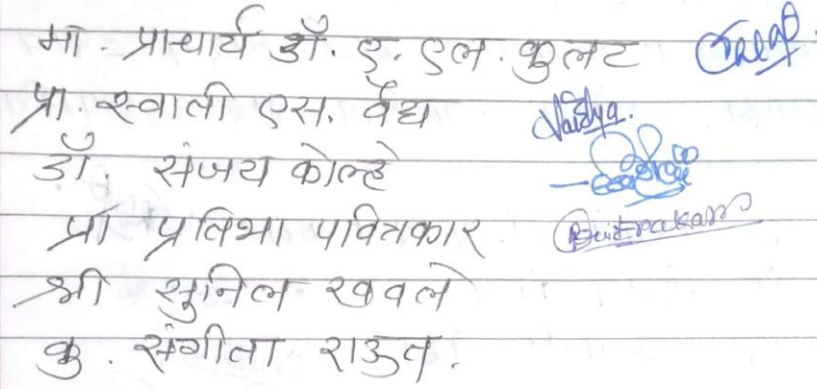 मा. प्राचार्य डॉ. ए. एल. कुलट
प्रा. स्वाती एस. वैद्य Vaidya.
डॉ. संजय कोल्हे
प्रा प्रतिभा पवित्रकार Pavitrakar
श्री सुनिल खवले
कु. संगीता राऊत.